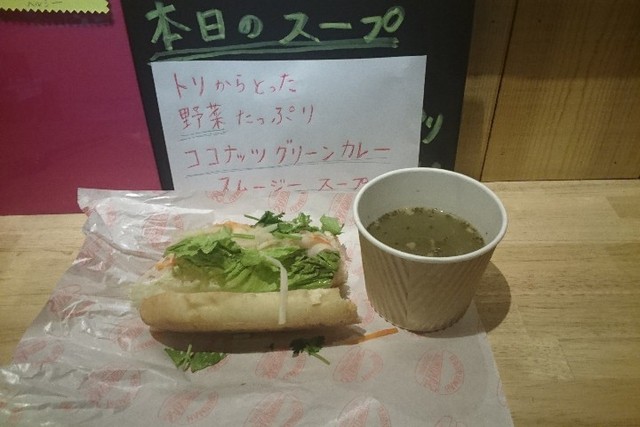 本日のスープ
トリからとった
野菜たっぷり
ココナッツグリーンカレー
スムージースープ